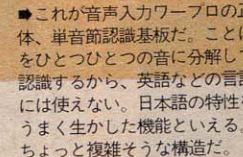 ➡これが音声入力ワープロの正
体、単音節認識基板だ。ことば
をひとつひとつの音に分解し
認識するから、英語などの言語
には使えない。日本語の特性を
うまく生かした機能といえる。
ちょっと複雑そうな構造だ。